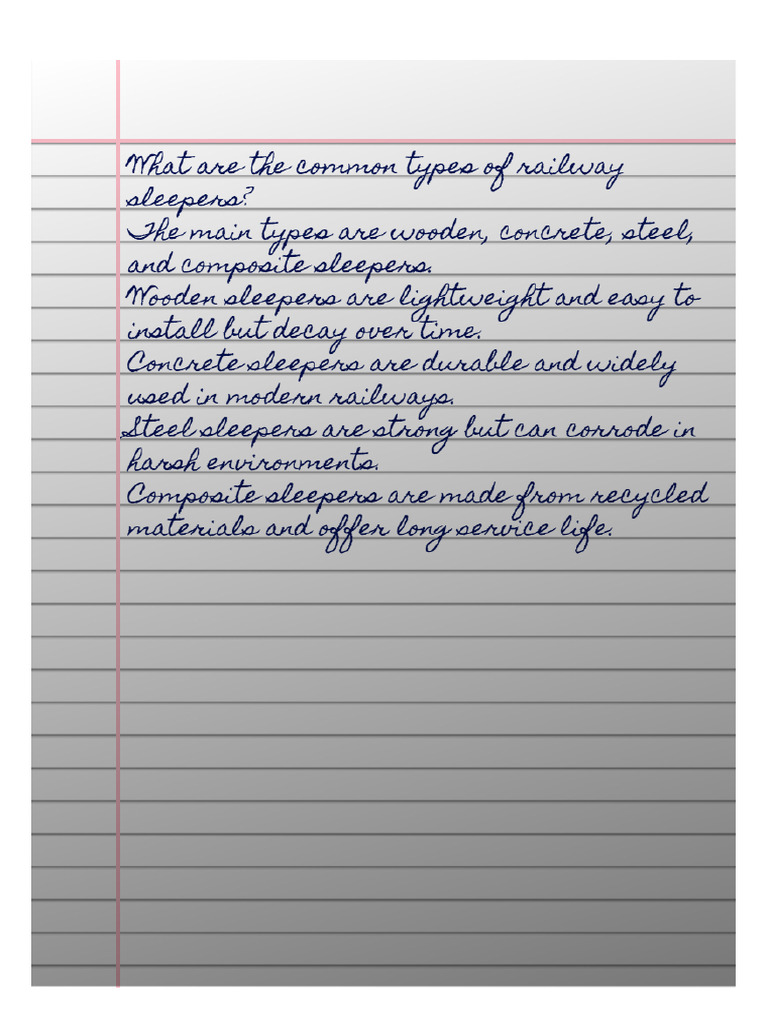 What are the common types of railway
sleepers?
The main types are wooden, concrete, steel,
and composite sleepers.
Wooden sleepers are lightweight and easy to
install but decay over time.
Concrete sleepers are durable and widely
used in modern railways.
Steel sleepers are strong but can corrode in
harsh environments.
Composite sleepers are made from recycled
materials and offer long service life.